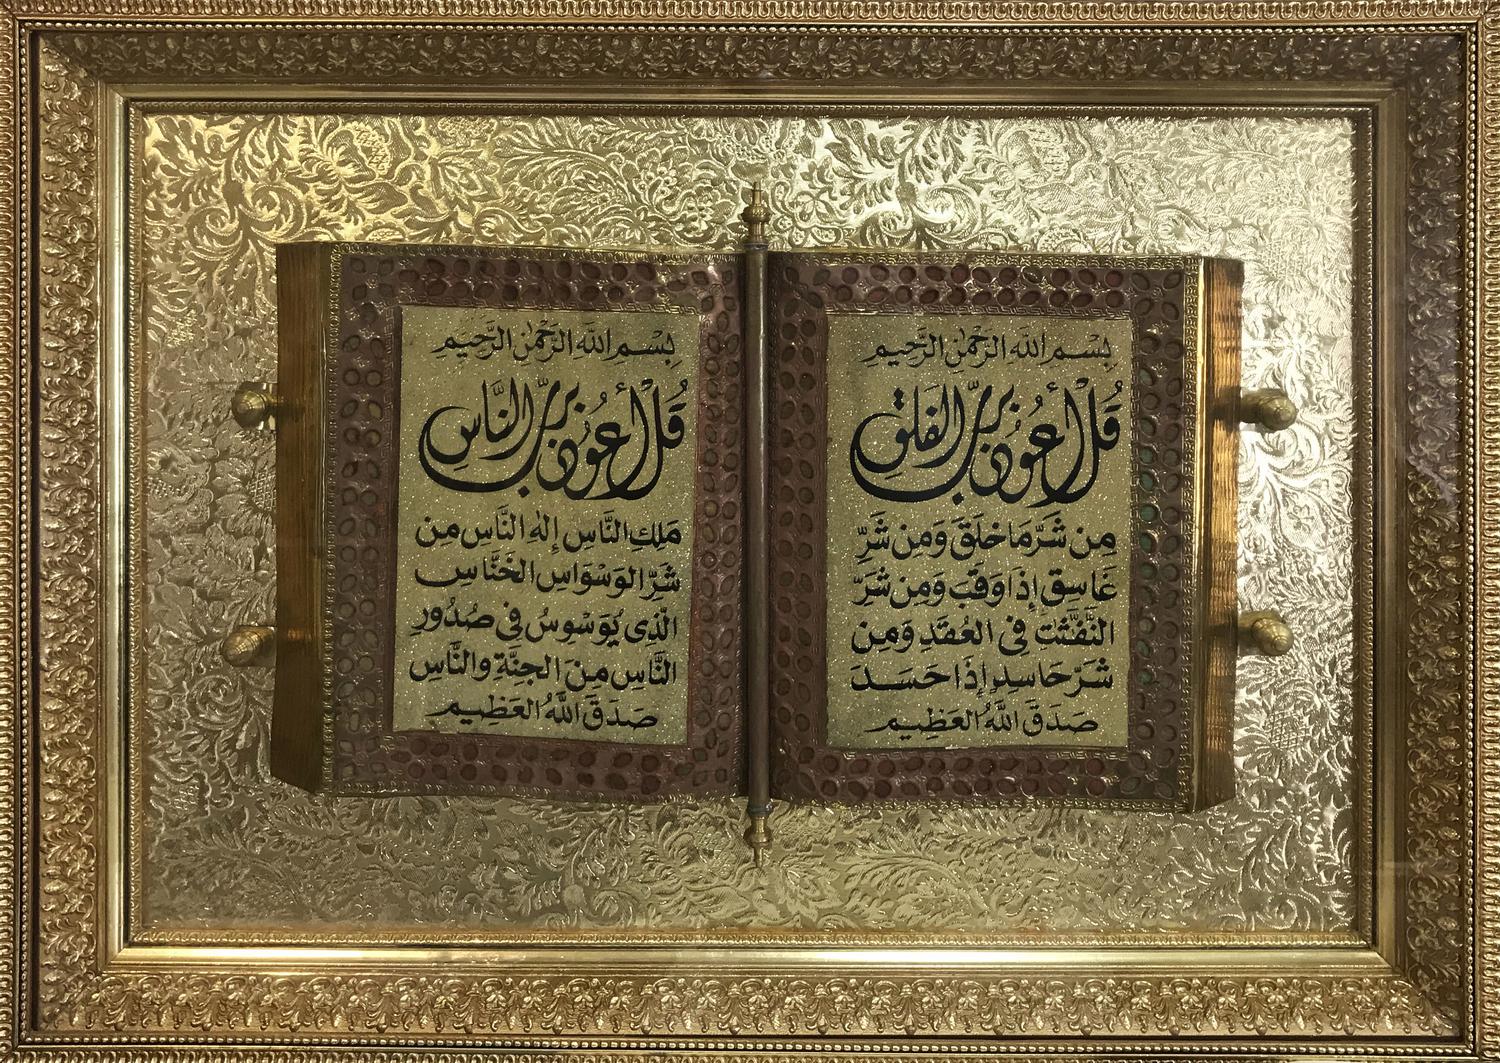 بِسْمِ اللهِ الرَّحْمٰنِ الرَّحِيمِ
قُلْ أَعُوذُ بِرَبِّ الفَلَقِ
مِن شَرِّ مَا خَلَقَ وَمِن شَرِّ
غَاسِقٍ إِذَا وَقَبَ وَمِن شَرِّ
النَّفّٰثٰتِ فِى العُقَدِ وَمِن
شَرِّ حَاسِدٍ إِذَا حَسَدَ
صَدَقَ اللهُ العَظِيم
بِسْمِ اللهِ الرَّحْمٰنِ الرَّحِيمِ
قُلْ أَعُوذُ بِرَبِّ النَّاسِ
مَلِكِ النَّاسِ إِلٰهِ النَّاسِ مِن
شَرِّ الوَسْوَاسِ الخَنَّاسِ
الَّذِى يُوَسْوِسُ فِى صُدُورِ
النَّاسِ مِنَ الجِنَّةِ والنَّاسِ
صَدَقَ اللهُ العَظِيم